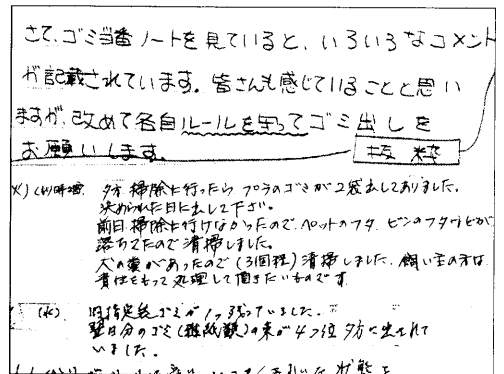 さて、ゴミ当番ノートを見ていると、いろいろなコメント
が記載されています。皆さんも感じていることと思い
ますが、改めて各自ルールを守ってゴミ出しを
お願いします。
抜粋
夕方 掃除に行ったら プラのゴミが2袋出してありました。
決められた日に出して下さい。
前日 掃除に行けなかったので、ペットのフタ、ビンのフタなどが
落ちてたので 清掃しました。
犬の糞があったので (3個程) 清掃しました。飼い主の方は
責任をもって処理して頂きたいものです
(水) 旧指定袋ゴミが1つ残っていました。
翌日分のゴミ(雑紙類)の束が4つ位 夕方に出されて
いました。
状態を